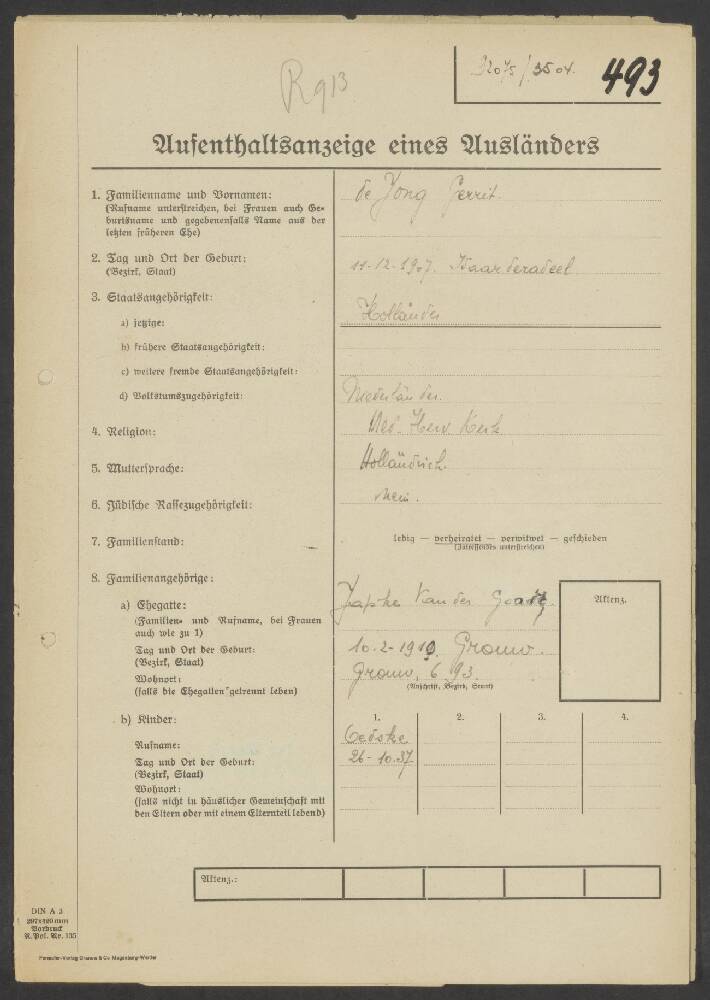 R 913
493
Aufenthaltsanzeige eines Ausländers
1. Familienname und Vornamen:
(Rufname unterstreichen, bei Frauen auch Ge-
burtsname und gegebenenfalls Name aus der
letzten früheren Ehe)
de Jong Gerrit.
2. Tag und Ort der Geburt:
(Bezirk, Staat)
11-12-1907. Baarderadeel
3. Staatsangehörigkeit:
a) jetzige:
Holländer
b) frühere Staatsangehörigkeit:
c) weitere fremde Staatsangehörigkeit:
d) Volkstumszugehörigkeit:
Niederländer.
4. Religion:
Ned. Herv. Kerk
5. Muttersprache:
Holländisch.
6. Jüdische Rassezugehörigkeit:
Nein.
7. Familienstand:
ledig — verheiratet — verwitwet — geschieden
(Zutreffendes unterstreichen)
8. Familienangehörige:
a) Ehegatte:
(Familien- und Rufname, bei Frauen
auch wie zu 1)
van der
Aktenz.
Tag und Ort der Geburt:
(Bezirk, Staat)
10-2-1919. Grouw.
Wohnort:
(falls die Ehegatten getrennt leben)
Grouw, 6 93.
(Anschrift, Bezirk, Staat)
b) Kinder:
1. 2. 3. 4.
Rufname:
Tag und Ort der Geburt:
(Bezirk, Staat)
26-10.37
Wohnort:
(falls nicht in häuslicher Gemeinschaft mit
den Eltern oder mit einem Elternteil lebend)
Aktenz.:
DIN A 3
297x420 mm
Vordruck
R. Pol. Nr. 135